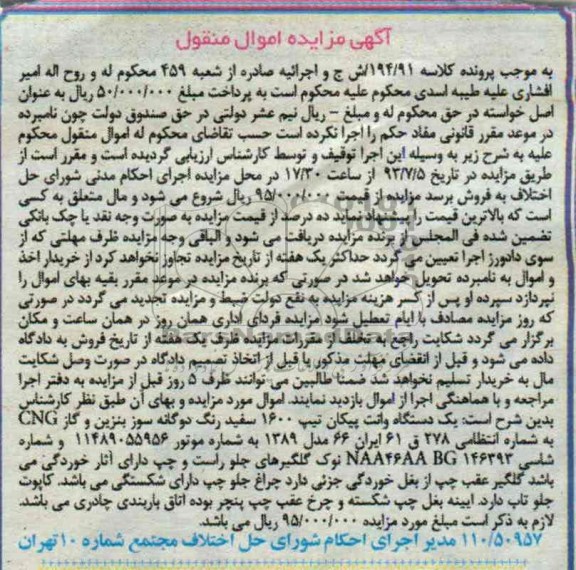 آگهی مزایده اموال منقول
به موجب پرونده کلاسه ۱۹۴/۹۱/ش ج و اجرائیه صادره از شعبه ۴۵۹ محکوم له و روح اله امیر
افشاری علیه طیبه اسدی محکوم علیه محکوم است به پرداخت مبلغ ۵۰/۰۰۰/۰۰۰ ریال به عنوان
اصل خواسته در حق محکوم له و مبلغ – ریال نیم عشر دولتی در حق صندوق دولت چون نامبرده
در موعد مقرر قانونی مفاد حکم را اجرا نکرده است حسب تقاضای محکوم له اموال منقول محکوم
علیه به شرح زیر به وسیله این اجرا توقیف و توسط کارشناس ارزیابی گردیده است و مقرر است از
طریق مزایده در تاریخ ۹۳/۷/۵ از ساعت ۱۷/۳۰ در محل مزایده اجرای احکام مدنی شورای حل
اختلاف به فروش برسد مزایده از قیمت ۹۵/۰۰۰/۰۰۰ ریال شروع می شود و مال متعلق به کسی
است که بالاترین قیمت را پیشنهاد نماید ده درصد از قیمت مزایده به صورت وجه نقد یا چک بانکی
تضمین شده فی المجلس از برنده مزایده دریافت می شود و الباقی وجه مزایده ظرف مهلتی که از
سوی دادورز اجرا تعیین می گردد حداکثر یک هفته از تاریخ مزایده تجاوز نخواهد کرد از خریدار اخذ
و اموال به نامبرده تحویل خواهد شد در صورتی که برنده مزایده در موعد مقرر بقیه بهای اموال را
نپردازد سپرده او پس از کسر هزینه مزایده به نفع دولت ضبط و مزایده تجدید می گردد در صورتی
که روز مزایده مصادف با ایام تعطیل شود مزایده فردای اداری همان روز در همان ساعت و مکان
برگزار می گردد شکایت راجع به تخلف از مقررات مزایده ظرف یک هفته از تاریخ فروش به دادگاه
داده می شود و قبل از انقضای مهلت مذکور یا قبل از اتخاذ تصمیم دادگاه در صورت وصل شکایت
مال به خریدار تسلیم نخواهد شد ضمنا طالبین می توانند ظرف ۵ روز قبل از مزایده به دفتر اجرا
مراجعه و با هماهنگی اجرا از اموال بازدید نمایند. اموال مورد مزایده و بهای آن طبق نظر کارشناس
بدین شرح است: یک دستگاه وانت پیکان تیپ ۱۶۰۰ سفید رنگ دوگانه سوز بنزین و گاز CNG
به شماره انتظامی ۲۷۸ ق ۶۱ ایران ۶۶ مدل ۱۳۸۹ به شماره موتور ۱۱۴۸۹۰۵۵۹۵۶ و شماره
شاسی NAA۴۶AA BG ۱۴۶۳۹۳ نوک گلگیرهای جلو راست و چپ دارای آثار خوردگی می
باشد گلگیر عقب چپ از بغل خوردگی جزئی دارد چراغ جلو چپ دارای شکستگی می باشد. کاپوت
جلو تاب دارد. ایینه بغل چپ شکسته و چرخ عقب چپ پنچر بوده اتاق باربندی چادری می باشد.
لازم به ذکر است مبلغ مورد مزایده ۹۵/۰۰۰/۰۰۰ ریال می باشد.
۱۱۰/۵۰۹۵۷ مدیر اجرای احکام شورای حل اختلاف مجتمع شماره ۱۰ تهران